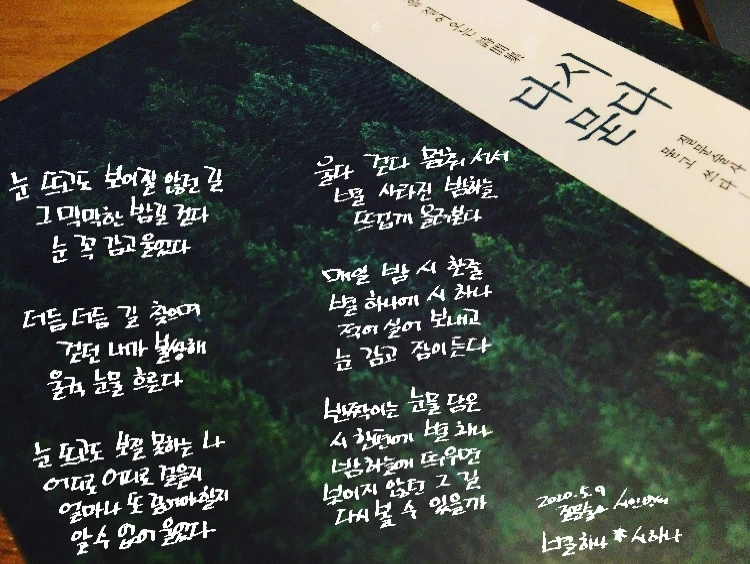 다시
묻다
묻고 쓰다
눈 뜨고도 보이질 않던 길
그 막막한 밤길 걷다
눈 꼭 감고 울었다
더듬더듬 길 찾으며
걷던 내가 불쌍해
울컥 눈물 흐른다
눈 뜨고도 보질 못하는 나
어디로 어디로 걸을지
얼마나 또 걸어야 할지
알 수 없어 울었다
울다 걷다 멈춰 서서
별 사라진 밤하늘
뜨겁게 올려본다
매일 밤 시 한줄
별 하나에 시 하나
적어 실어 보내고
눈 감고 잠이 든다
반짝이는 눈물 담은
시 한편에 별 하나
밤하늘에 띄우면
보이지 않던 그 길
다시 볼 수 있을까
2020. 5. 9
별 하나 * 시 하나